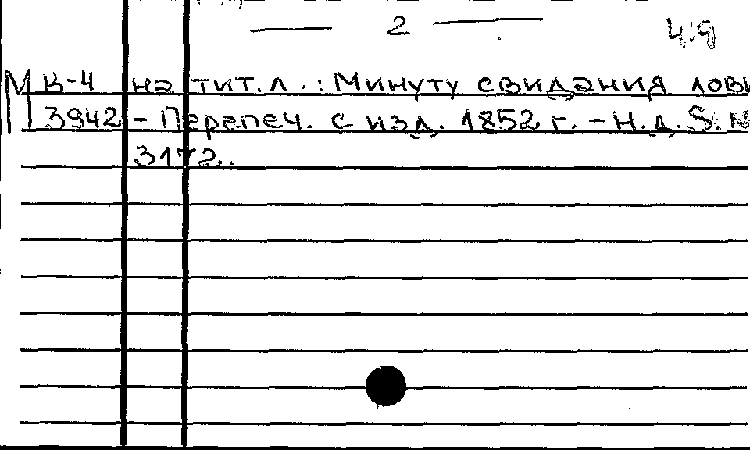 — 2 —
4.9
М К-4 на тит.л.: Минуту свидания лови
3942 - Перепеч. с изд. 1852 г. - Н.д. S. N
3172.